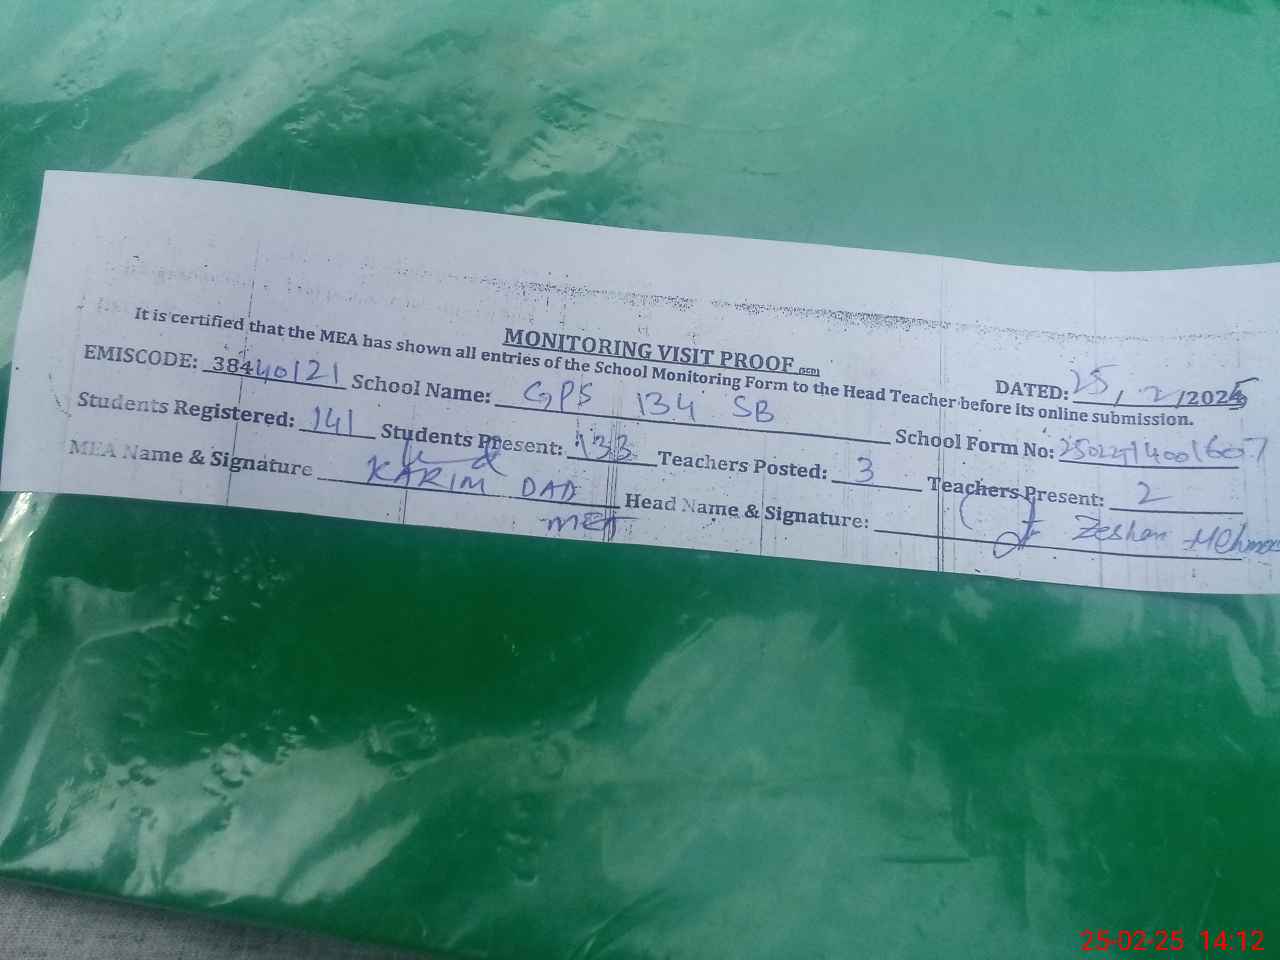 MONITORING VISIT PROOF
DATED: 25, 2/2025
It is certified that the MEA has shown all entries of the School Monitoring Form to the Head Teacher before its online submission.
EMISCODE: 38440121 School Name: GPS 134 SB School Form No:
Students Registered: 141 Students Present: 133 Teachers Posted: 3 Teachers Present: 2
MEA Name & Signature KARIM DAD Head Name & Signature: Zeshan
MEA
25-02-25 14:12